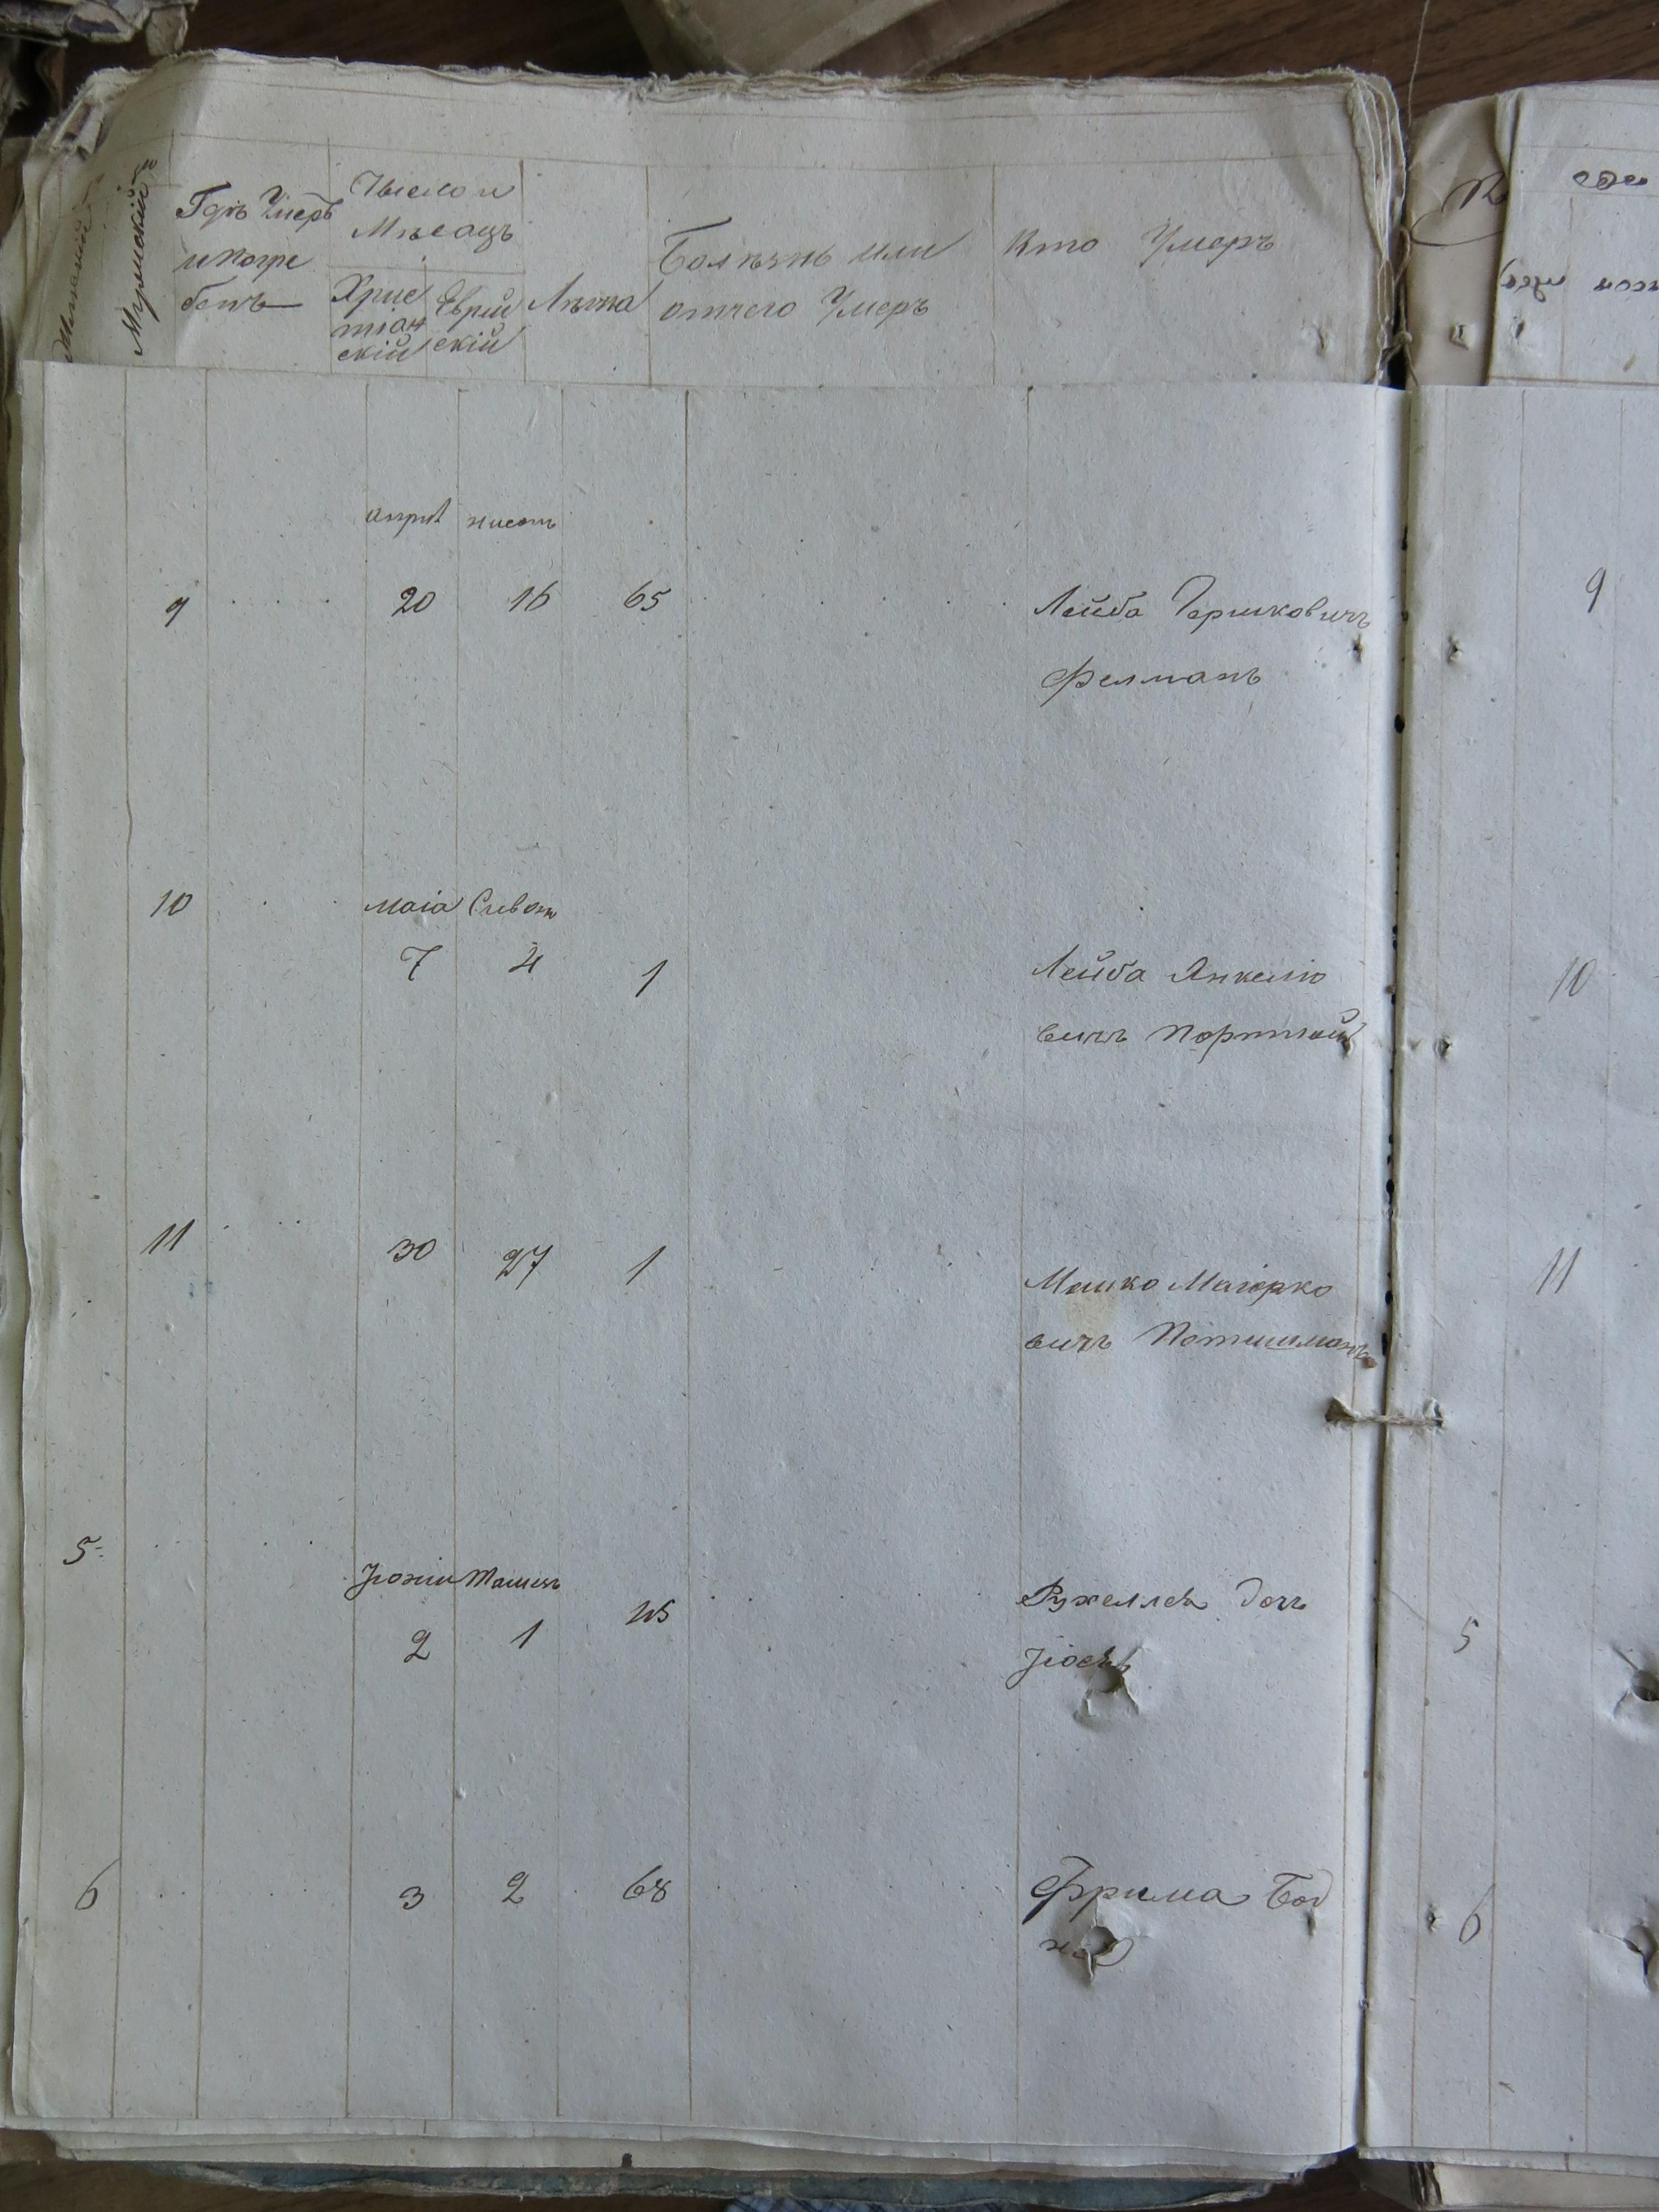 Женский
Мужeский
Где Умеръ
и погре
бенъ
Число и
Мѣсацъ
Хрис
тіан
скій
Еврей
скій
Лѣта
Болѣзнь или
отчего Умеръ
Кто Умеръ
апрел нисанъ
9 20 16 65 Лейба Гершковичъ 9
Фелманъ
10 маія Сиванъ
7 4 1 Лейба Янкелю 10
вичъ
11 30 27 1 Мошко Маіорко 11
вичъ Потишманъ
5 Іюнии Тамизъ
2 1 Рухеллея дочь 5
6 3 2 68 Фрима Бод 6